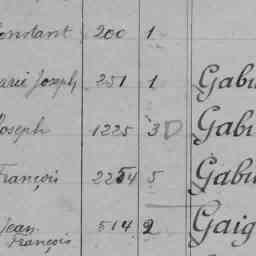 Constant 200 1
Marie Joseph 251 1 Gabu
Joseph 1225 3 D Gabu
François 2254 5 Gabu
Jean François 514 2 Gaig